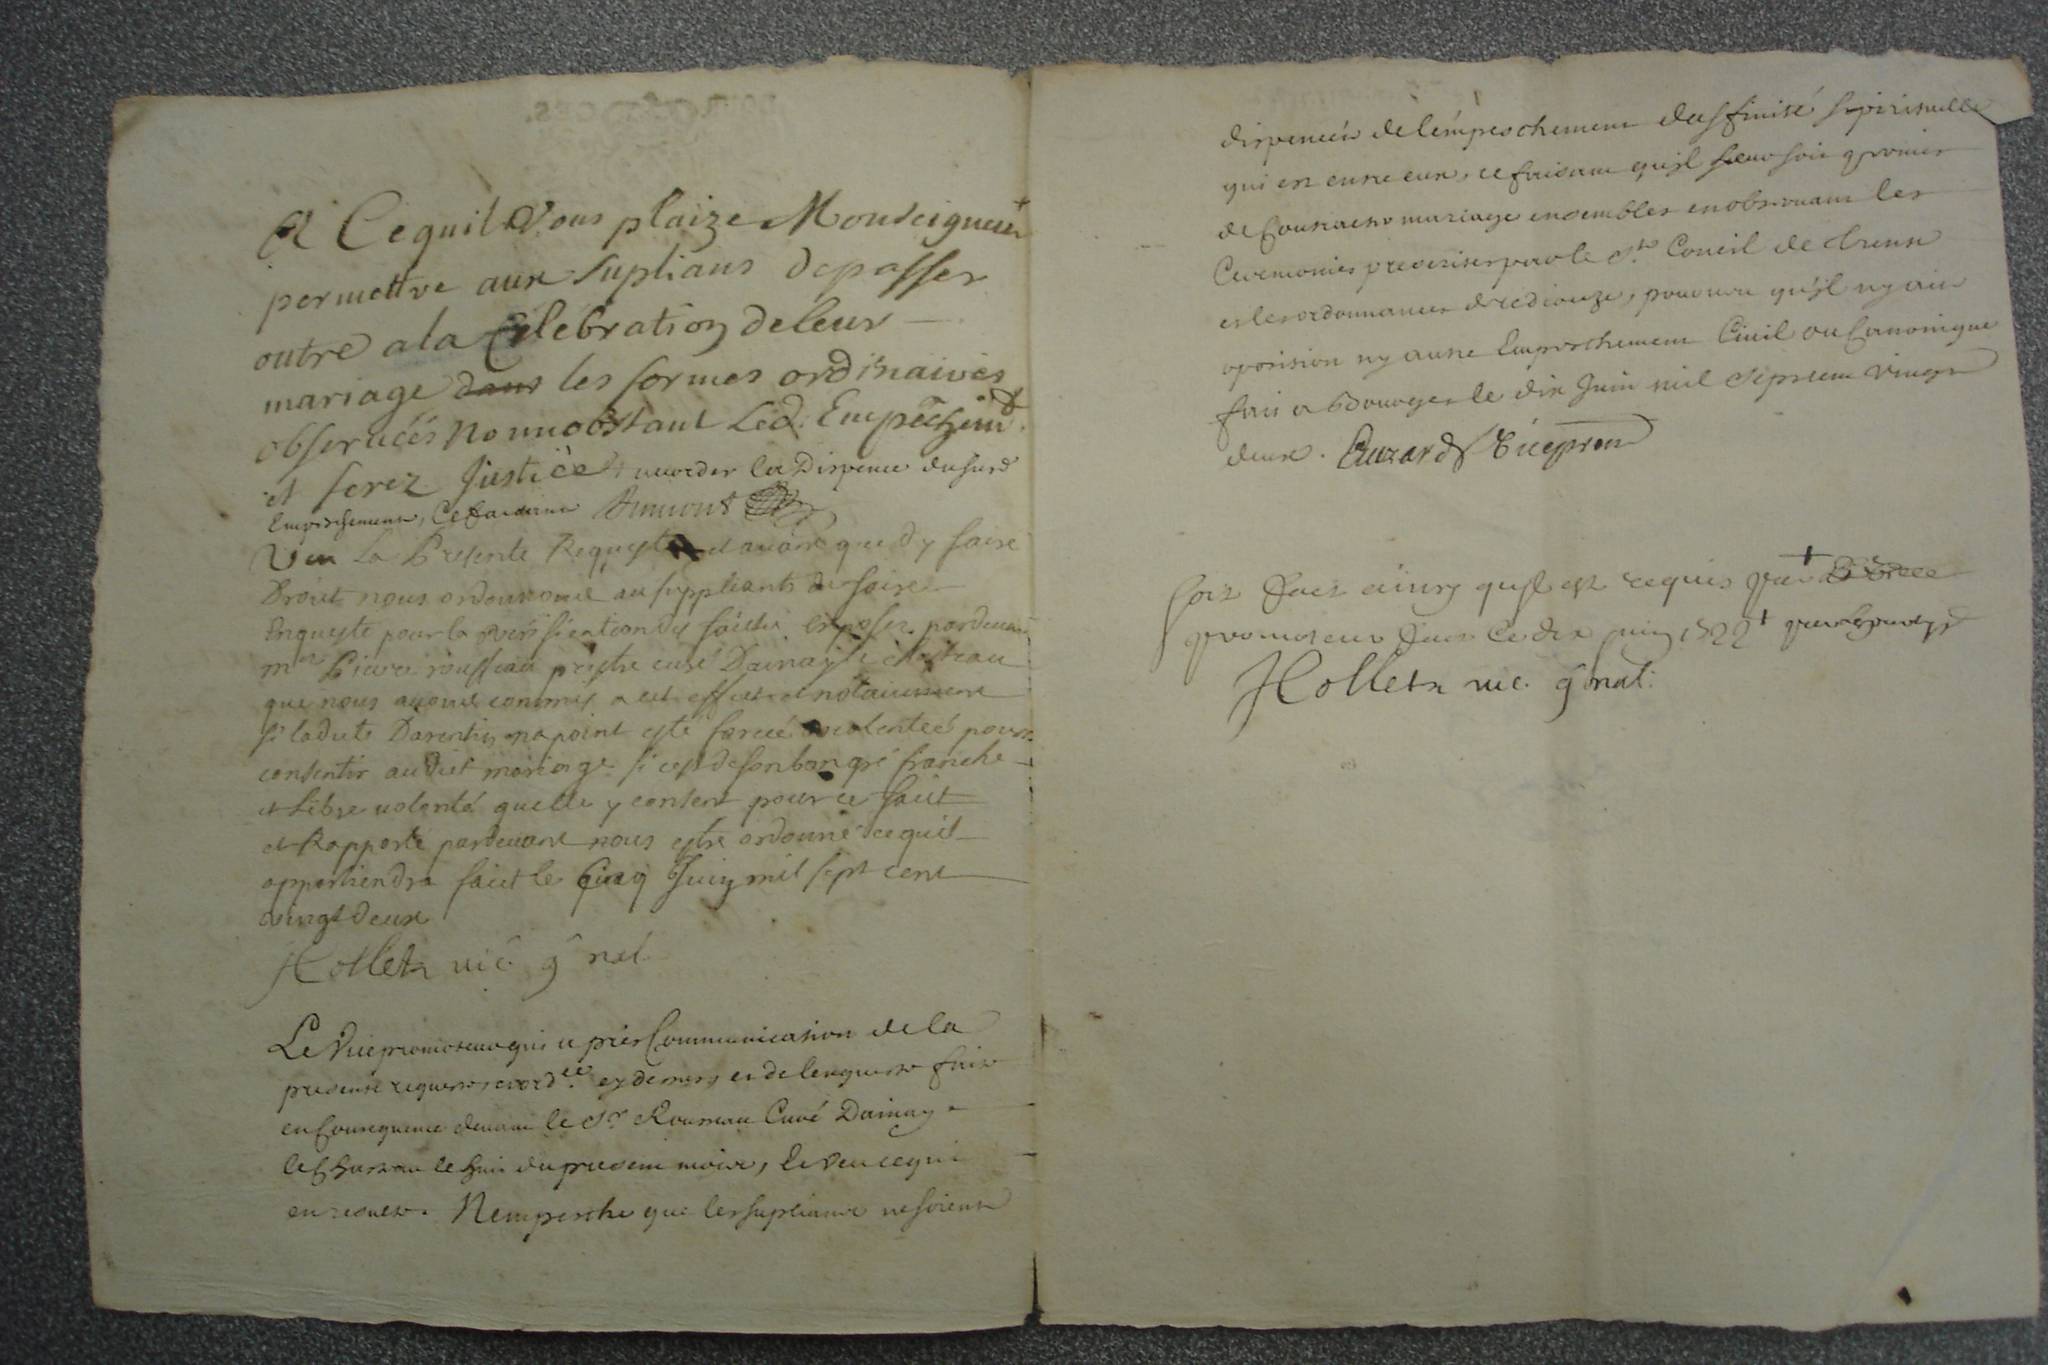 A Ce quil Vous plaize Monseigneur +
permettre aux suplians de passer
outre a la Célébration de leur
mariage dans les formes ordinaires
observéés nonnobstant Led. Empechem.t
et ferez Justice + accorder la Dispence du susd
Empeschement, Ce faisant Aumont
Veu La Presente Requeste et avant que dy faire
Droit nous ordonnons aux suppliants de faire
Enqueste pour la verification des faicts exposez pardevant
mre Pierre rousseau prestre curé Dainay le chasteau
que nous avons commis a cet effect et notamment
si ladite Darentin na point esté forcée violenteé pour
consentir audict mariage si cest de son bon gré franche
et libre volonté quelle y consent pour ce faict
et Rapporté pardevant nous estre ordonné ce quil
appartiendra faict le Cinq Juin mil sept cent
vingt deux
Hollet vic. gnal
Le Vicepromoteur qui a pris Communication de la
presente requeste, ord.ce cy dessus et de lenqueste faite
en Consequence devant le Sr. Rousseau Curé Dainay
le Chasteau le huit du present mois, le Veu ce qui
en resulte. Nempesche que les supliants ne soient
dispencés de lémpeschement daffinité spirituelle
qui est entre eux, ce faisant qu'il leur soit permis
de Contracter mariage ensembles en observant les
Ceremonies prescrites par le St. Concil de trente
et les ordonnances de ce dioceze, pourveu qu'il ny ait
oposition ny autre Empeschement Civil ou Canonique
fait a Bourges le dix Juin mil sept cent vingt
deux. Auzard Viceprom
Soit fait ainsy quil est requis par +
promoteur fait ce dix juin 1722 +
Hollet vic. gnal.